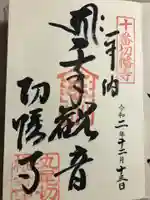 十番切幡寺
奉納
千手観音
切幡寺
令和二年十二月十三日